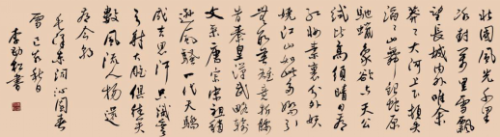 北國風光千里
冰封万里雪飘
望长城内外唯余
莽莽大河上下顿失
滔滔山舞银蛇原
驰蜡象欲与天公
试比高须晴日看
红妆素裹分外妖
娆江山如此多娇引
无数英雄竞折腰
惜秦皇汉武略输
文采唐宗宋祖稍
逊风骚一代天骄
成吉思汗只识弯
弓射大雕俱往矣
数风流人物还
看今朝
毛泽东词沁园春
雪 秋日
李 书